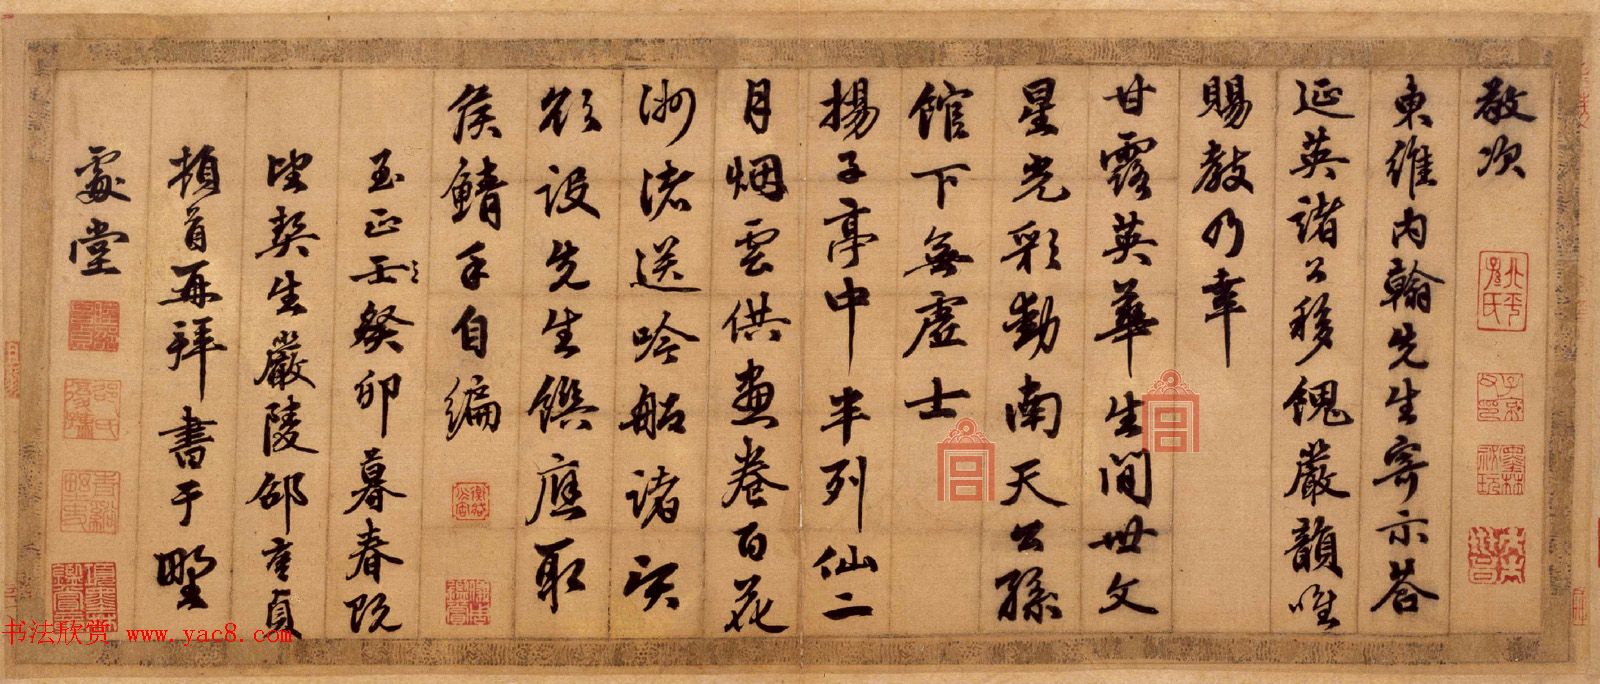 敬次
東維內翰先生寄示答
延英諸公移餽嚴韻唯
賜教乃幸
甘露英華生間世文
星光彩動南天公孫
館下無虛士
揚子亭中半列仙二
月烟雲供畫卷百花
洲渚送吟船諸賓
設先生饌應取
侯鯖手自編
至正壬癸卯暮春既
望契生嚴陵邵亨貞
頓首再拜書于野
處堂
书法欣赏 www.yac8.com